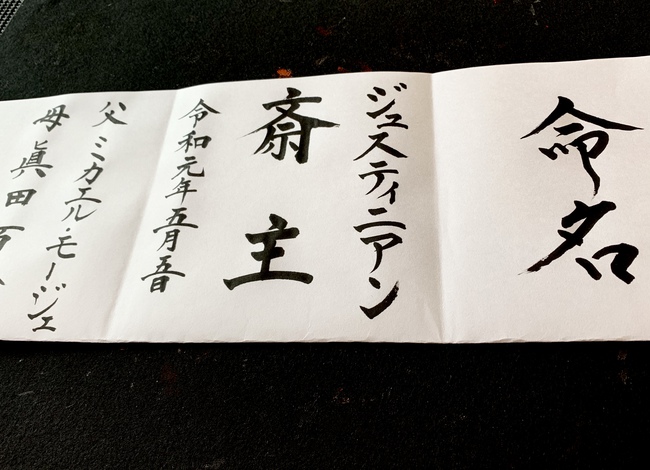 命名
ジュスティニアン
斎主
令和元年五月五日
父 ミカエル・モージェ
母 眞田